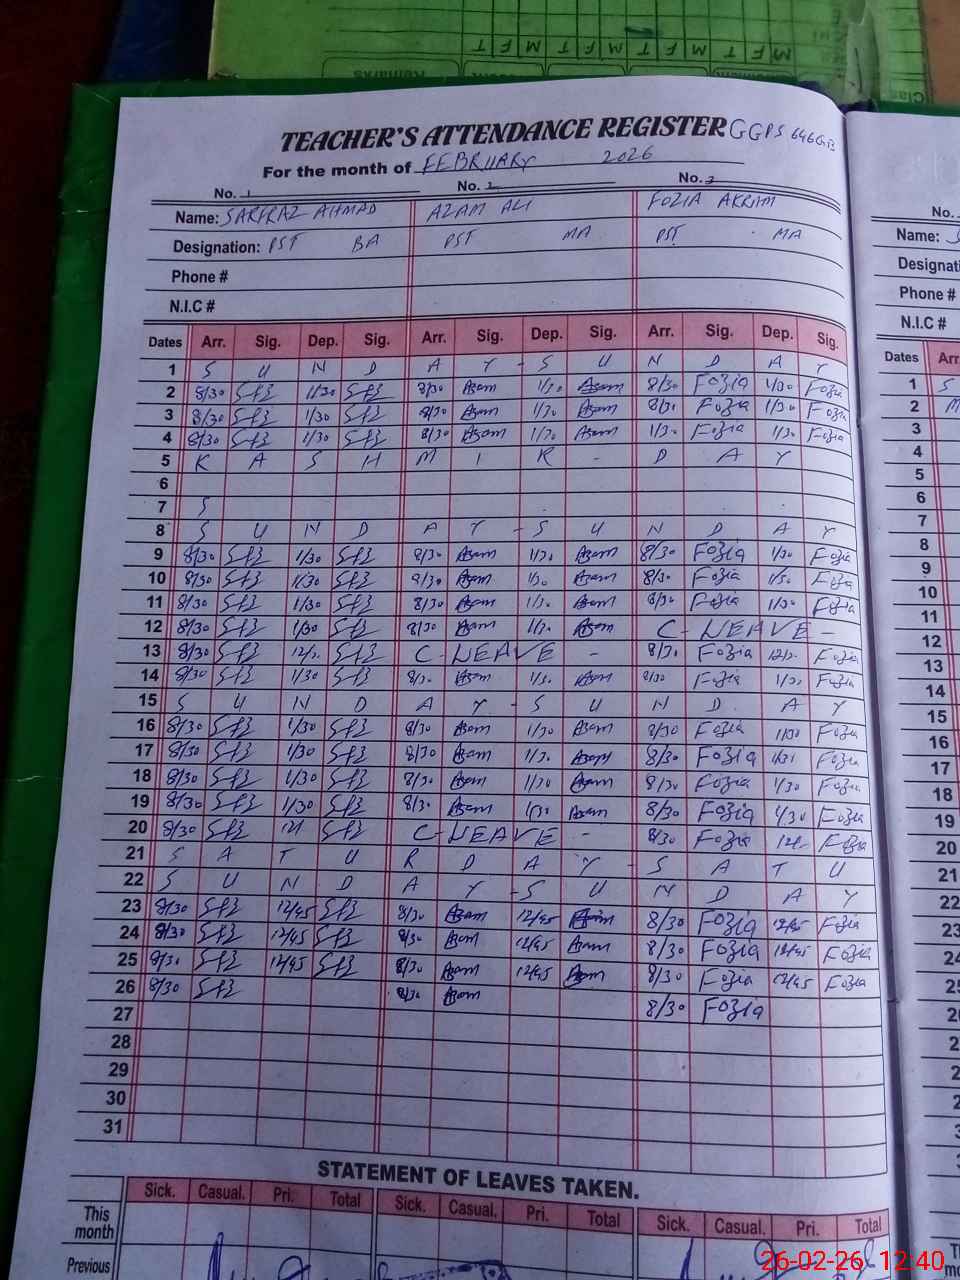 TEACHER'S ATTENDANCE REGISTER GGPS 646GB
For the month of FEBRUARY 2026
No. 1 No. 2 No. 3
Name: SARFRAZ AHMAD AZAM ALI FOZIA AKRAM
Designation: PST BA PST MA PST MA
Phone #
N.I.C #
Dates Arr. Sig. Dep. Sig. Arr. Sig. Dep. Sig. Arr. Sig. Dep. Sig.
1 S U N D A Y - S U N D A Y
2 8/30 1/30 8/30 Azam 1/30 Azam 8/30 Fozia 1/30 Fozia
3 8/30 1/30 8/30 Azam 1/30 Azam 8/30 Fozia 1/30 Fozia
4 8/30 1/30 8/30 Azam 1/30 Azam 1/30 Fozia 1/30 Fozia
5 K A S H M I R - D A Y
6
7 S
8 S U N D A Y - S U N D A Y
9 8/30 1/30 8/30 Azam 1/30 Azam 8/30 Fozia 1/30 Fozia
10 8/30 1/30 8/30 Azam 1/30 Azam 8/30 Fozia 1/30 Fozia
11 8/30 1/30 8/30 Azam 1/30 Azam 8/30 Fozia 1/30 Fozia
12 8/30 1/30 8/30 Azam 1/30 Azam C - LEAVE -
13 8/30 C - LEAVE - 8/30 Fozia Fozia
14 8/30 1/30 8/30 Azam 1/30 Azam 8/30 Fozia 1/30 Fozia
15 S U N D A Y - S U N D A Y
16 8/30 1/30 8/30 Azam 1/30 Azam 8/30 Fozia 1/30 Fozia
17 8/30 1/30 8/30 Azam 1/30 Azam 8/30 Fozia 1/30 Fozia
18 8/30 1/30 8/30 Azam 1/30 Azam 8/30 Fozia 1/30 Fozia
19 8/30 1/30 8/30 Azam 1/30 Azam 8/30 Fozia 1/30 Fozia
20 8/30 C - LEAVE - 8/30 Fozia Fozia
21 S A T U R D A Y - S A T U
22 S U N D A Y - S U N D A Y
23 8/30 12/45 8/30 Azam 12/45 Azam 8/30 Fozia 12/45 Fozia
24 8/30 12/45 8/30 Azam 12/45 Azam 8/30 Fozia 12/45 Fozia
25 8/30 12/45 8/30 Azam 12/45 Azam 8/30 Fozia 12/45 Fozia
26 8/30 8/30 Azam 8/30 Fozia
27
28
29
30
31
STATEMENT OF LEAVES TAKEN.
Sick. Casual. Pri. Total Sick. Casual. Pri. Total Sick. Casual. Pri. Total
This month
Previous
No.
Name:
Designati
Phone #
N.I.C #
Dates Arr
1 S
2 M
3
4
5
6
7
8
9
10
11
12
13
14
15
16
17
18
19
20
21
22
23
26-02-26 12:40